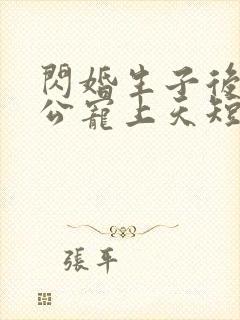 閃婚生子後
公寵上天短
張平